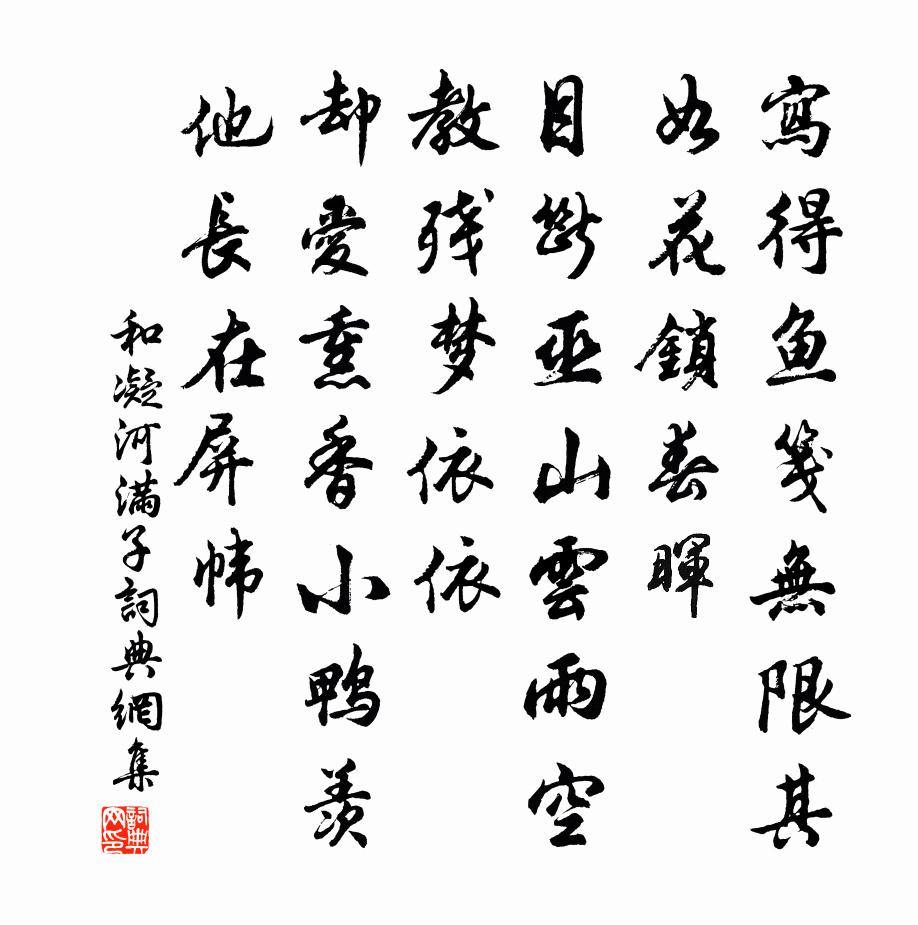 寫得鱼箋無限其
如花鎖春暉
目断巫山雲雨空
教残梦依依
却愛熏香小鴨羨
他長在屏帏
和凝河满子詞典網集
詞典网印